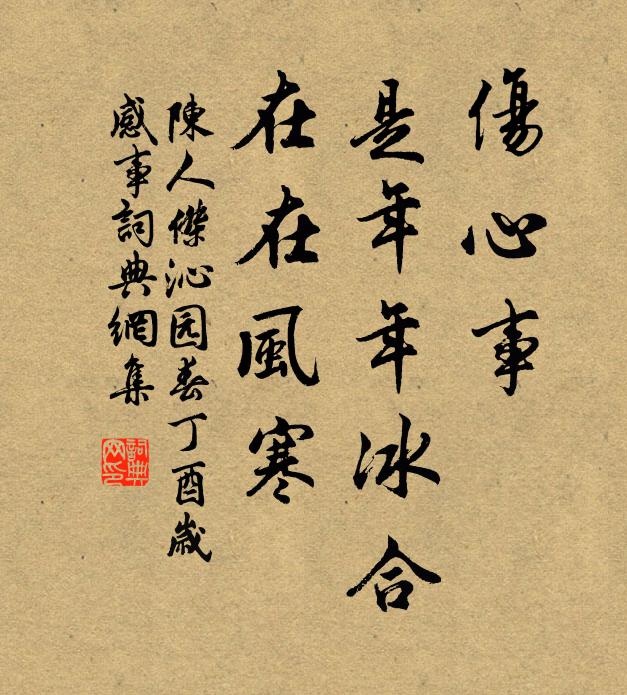 傷心事
是年年冰合
在在風寒
陳人傑沁园春丁酉歲
感事詞典網集
詞典網印